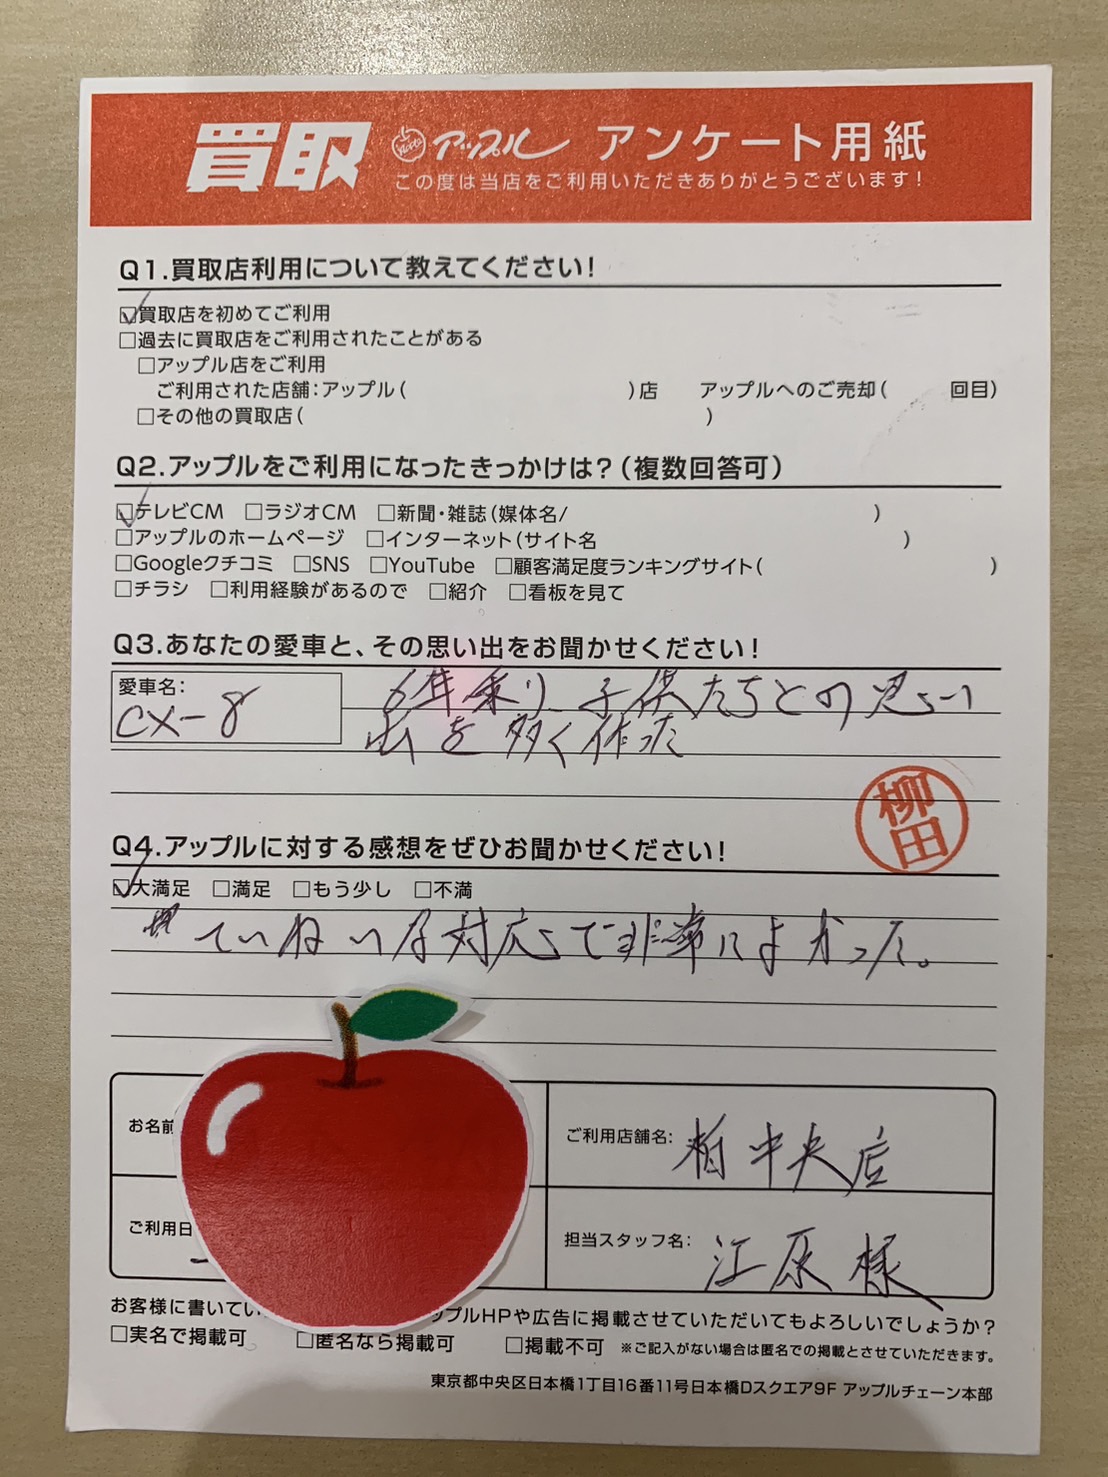 買取 アップル アンケート用紙
この度は当店をご利用いただきありがとうございます!
Q1.買取店利用について教えてください!
☑買取店を初めてご利用
□過去に買取店をご利用されたことがある
□アップル店をご利用
ご利用された店舗:アップル( )店 アップルへのご売却( 回目)
□その他の買取店( )
Q2.アップルをご利用になったきっかけは?(複数回答可)
☑テレビCM □ラジオCM □新聞・雑誌(媒体名/ )
□アップルのホームページ □インターネット(サイト名 )
□Googleクチコミ □SNS □YouTube □顧客満足度ランキングサイト( )
□チラシ □利用経験があるので □紹介 □看板を見て
Q3.あなたの愛車と、その思い出をお聞かせください!
愛車名:
CX-8
6年乗り 子供たちとの思い
出を多く作った
柳田
Q4.アップルに対する感想をぜひお聞かせください!
☑大満足 □満足 □もう少し □不満
ていねいな対応で非常によかった。
お名前
ご利用店舗名: 柏中央店
ご利用日
担当スタッフ名: 江原様
お客様に書いてい ップルHPや広告に掲載させていただいてもよろしいでしょうか?
□実名で掲載可 □匿名なら掲載可 □掲載不可 ※ご記入がない場合は匿名での掲載とさせていただきます。
東京都中央区日本橋1丁目16番11号日本橋Dスクエア9F アップルチェーン本部